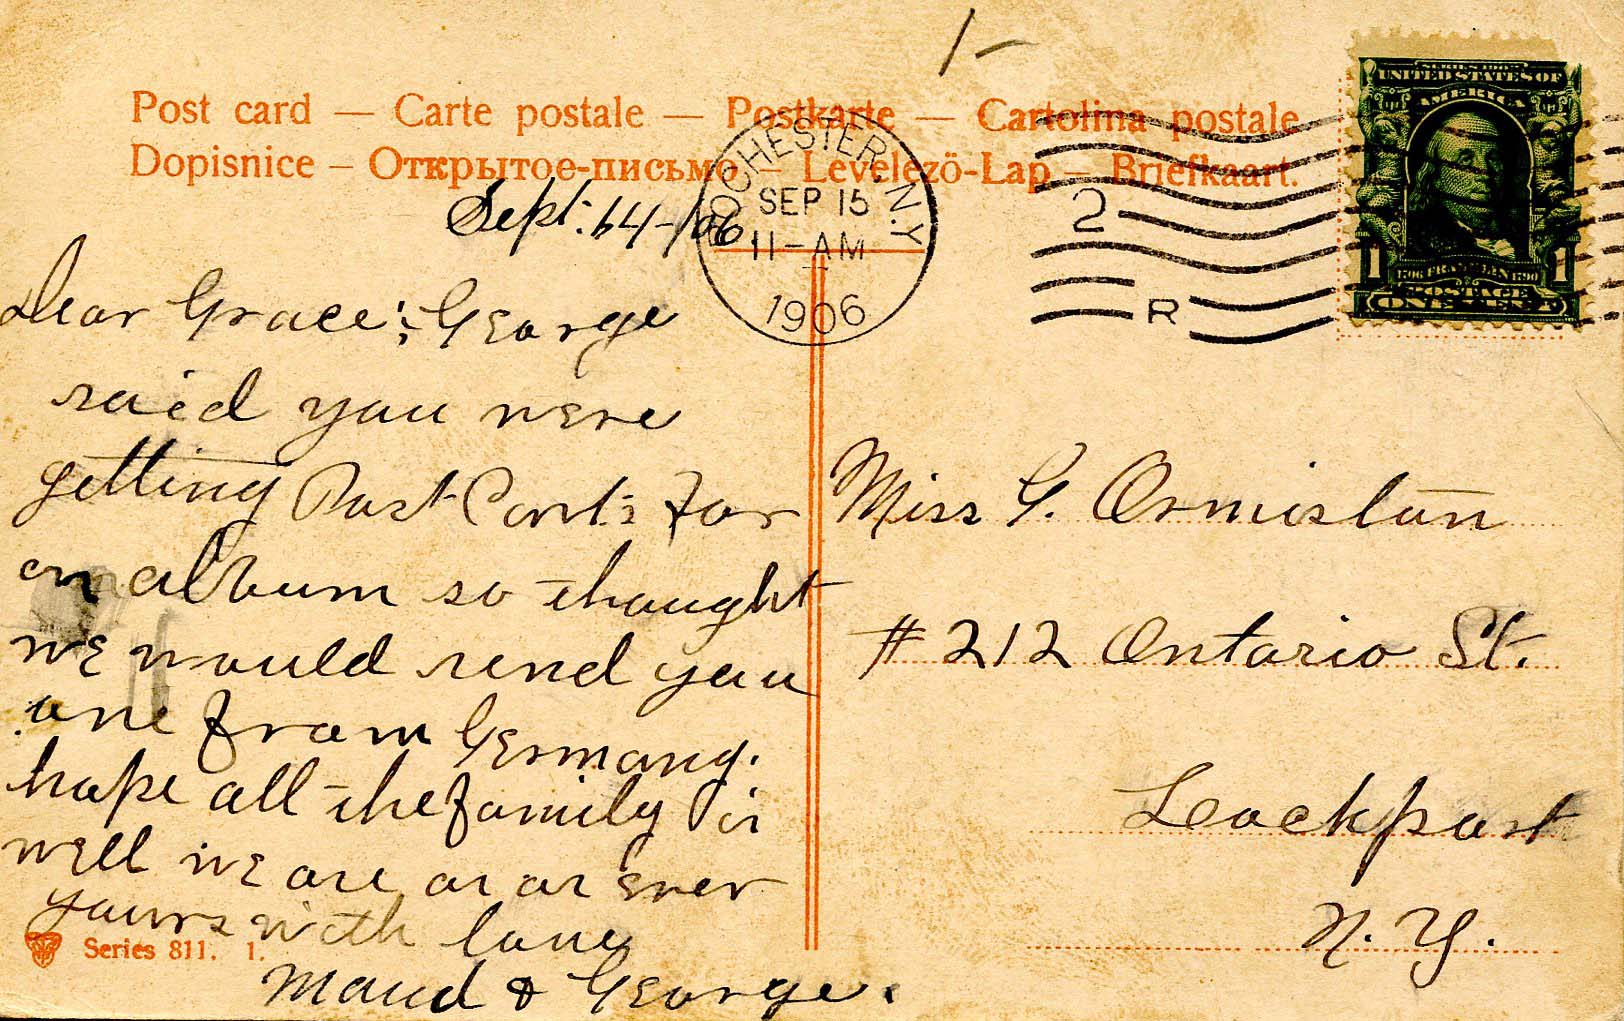 1-
Post card — Carte postale — Postkarte — Cartolina postale
Dopisnice — Открытое-письмо — Levelező-Lap — Briefkaart.
ROCHESTER, N.Y.
SEP 15
11-AM
1906
2
R
UNITED STATES OF
AMERICA
1 FRANKLIN 1
POSTAGE
ONE CENT
Sept. 14-/06
Dear Grace:; George
said you were
getting Post Cards for
an album so thought
we would send you
one from Germany.
hope all the family is
well we are as ever
yours with love
Maud & George.
Miss G. Ormiston
#212 Ontario St.
Lockport
N. Y.
Series 811. 1.